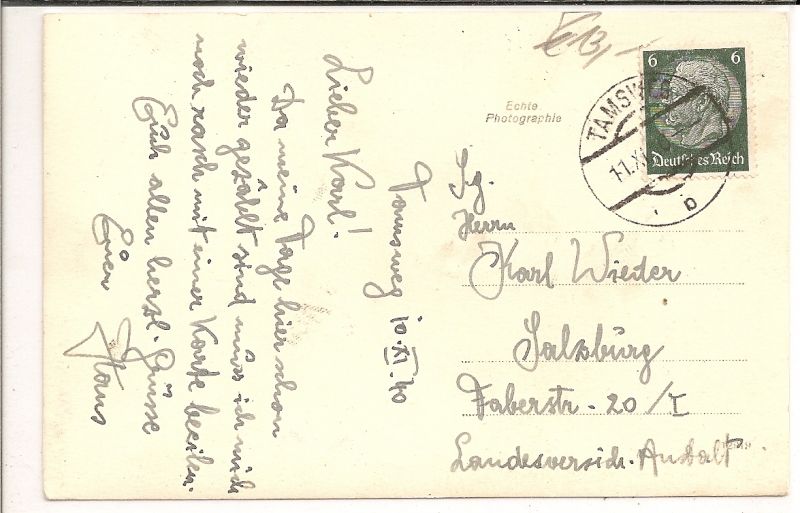 Tamsweg 10.XI.40
Lieber Karl!
Da meine Tage hier schon
wieder gezählt sind muss ich mich
noch rasch mit einer Karte beeilen.
Euch allen herzl. Grüsse
Euer
Hans
Echte
Photographie
6 6
Deutsches Reich
TAMSWEG
11.XI
b
Sg.
Herrn
Karl Wieder
Salzburg
Faberstr. 20/I
Landesversich. Anstalt